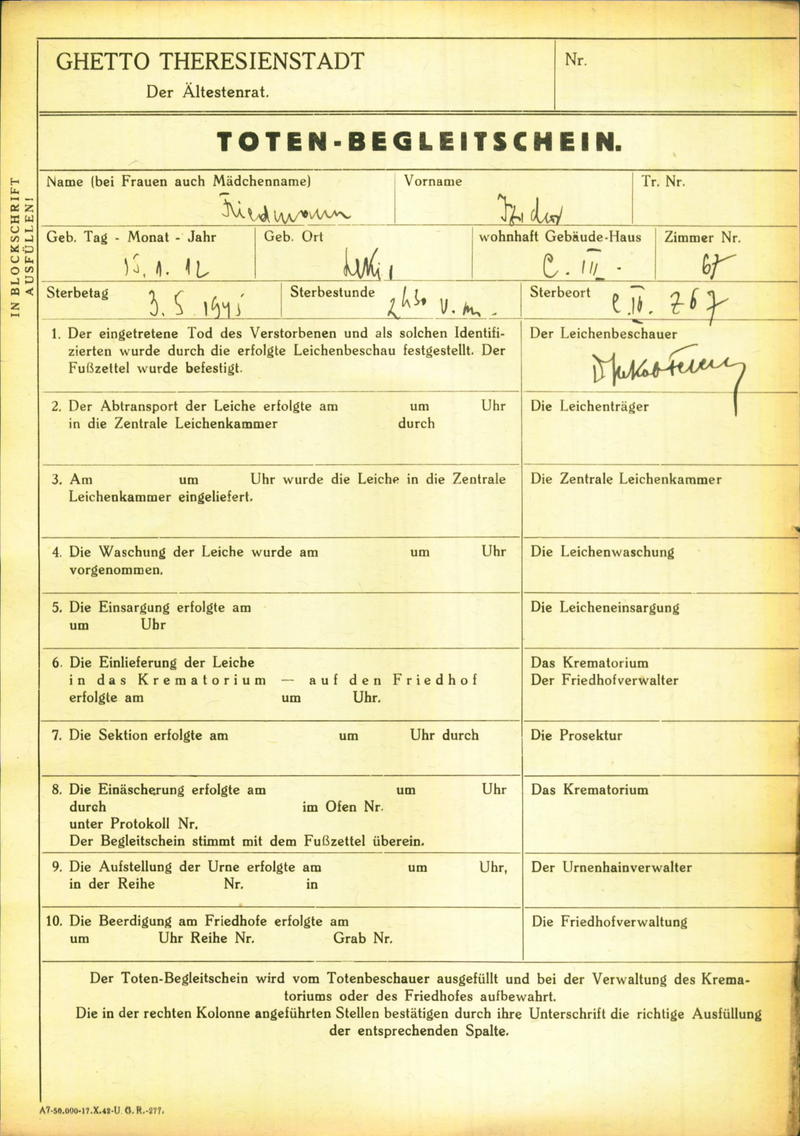 GHETTO THERESIENSTADT
Der Ältestenrat.
Nr.
TOTEN-BEGLEITSCHEIN.
IN BLOCKSCHRIFT
AUSFÜLLEN!
Name (bei Frauen auch Mädchenname)
Friedmann
Vorname
Isidor
Tr. Nr.
Geb. Tag - Monat - Jahr
15. 1. 12
Geb. Ort
wohnhaft Gebäude-Haus
C. III.
Zimmer Nr.
67
Sterbetag
3. 5 1945
Sterbestunde
2h30 V. m.
Sterbeort
C. III. 267
1. Der eingetretene Tod des Verstorbenen und als solchen Identifi-
zierten wurde durch die erfolgte Leichenbeschau festgestellt. Der
Fußzettel wurde befestigt.
Der Leichenbeschauer
2. Der Abtransport der Leiche erfolgte am um Uhr
in die Zentrale Leichenkammer durch
Die Leichenträger
3. Am um Uhr wurde die Leiche in die Zentrale
Leichenkammer eingeliefert.
Die Zentrale Leichenkammer
4. Die Waschung der Leiche wurde am um Uhr
vorgenommen.
Die Leichenwaschung
5. Die Einsargung erfolgte am
um Uhr
Die Leicheneinsargung
6. Die Einlieferung der Leiche
in das Krematorium — auf den Friedhof
erfolgte am um Uhr.
Das Krematorium
Der Friedhofverwalter
7. Die Sektion erfolgte am um Uhr durch
Die Prosektur
8. Die Einäscherung erfolgte am um Uhr
durch im Ofen Nr.
unter Protokoll Nr.
Der Begleitschein stimmt mit dem Fußzettel überein.
Das Krematorium
9. Die Aufstellung der Urne erfolgte am um Uhr,
in der Reihe Nr. in
Der Urnenhainverwalter
10. Die Beerdigung am Friedhofe erfolgte am
um Uhr Reihe Nr. Grab Nr.
Die Friedhofverwaltung
Der Toten-Begleitschein wird vom Totenbeschauer ausgefüllt und bei der Verwaltung des Krema-
toriums oder des Friedhofes aufbewahrt.
Die in der rechten Kolonne angeführten Stellen bestätigen durch ihre Unterschrift die richtige Ausfüllung
der entsprechenden Spalte.
A7-50.000-17.X.42-U. G. R.-277.